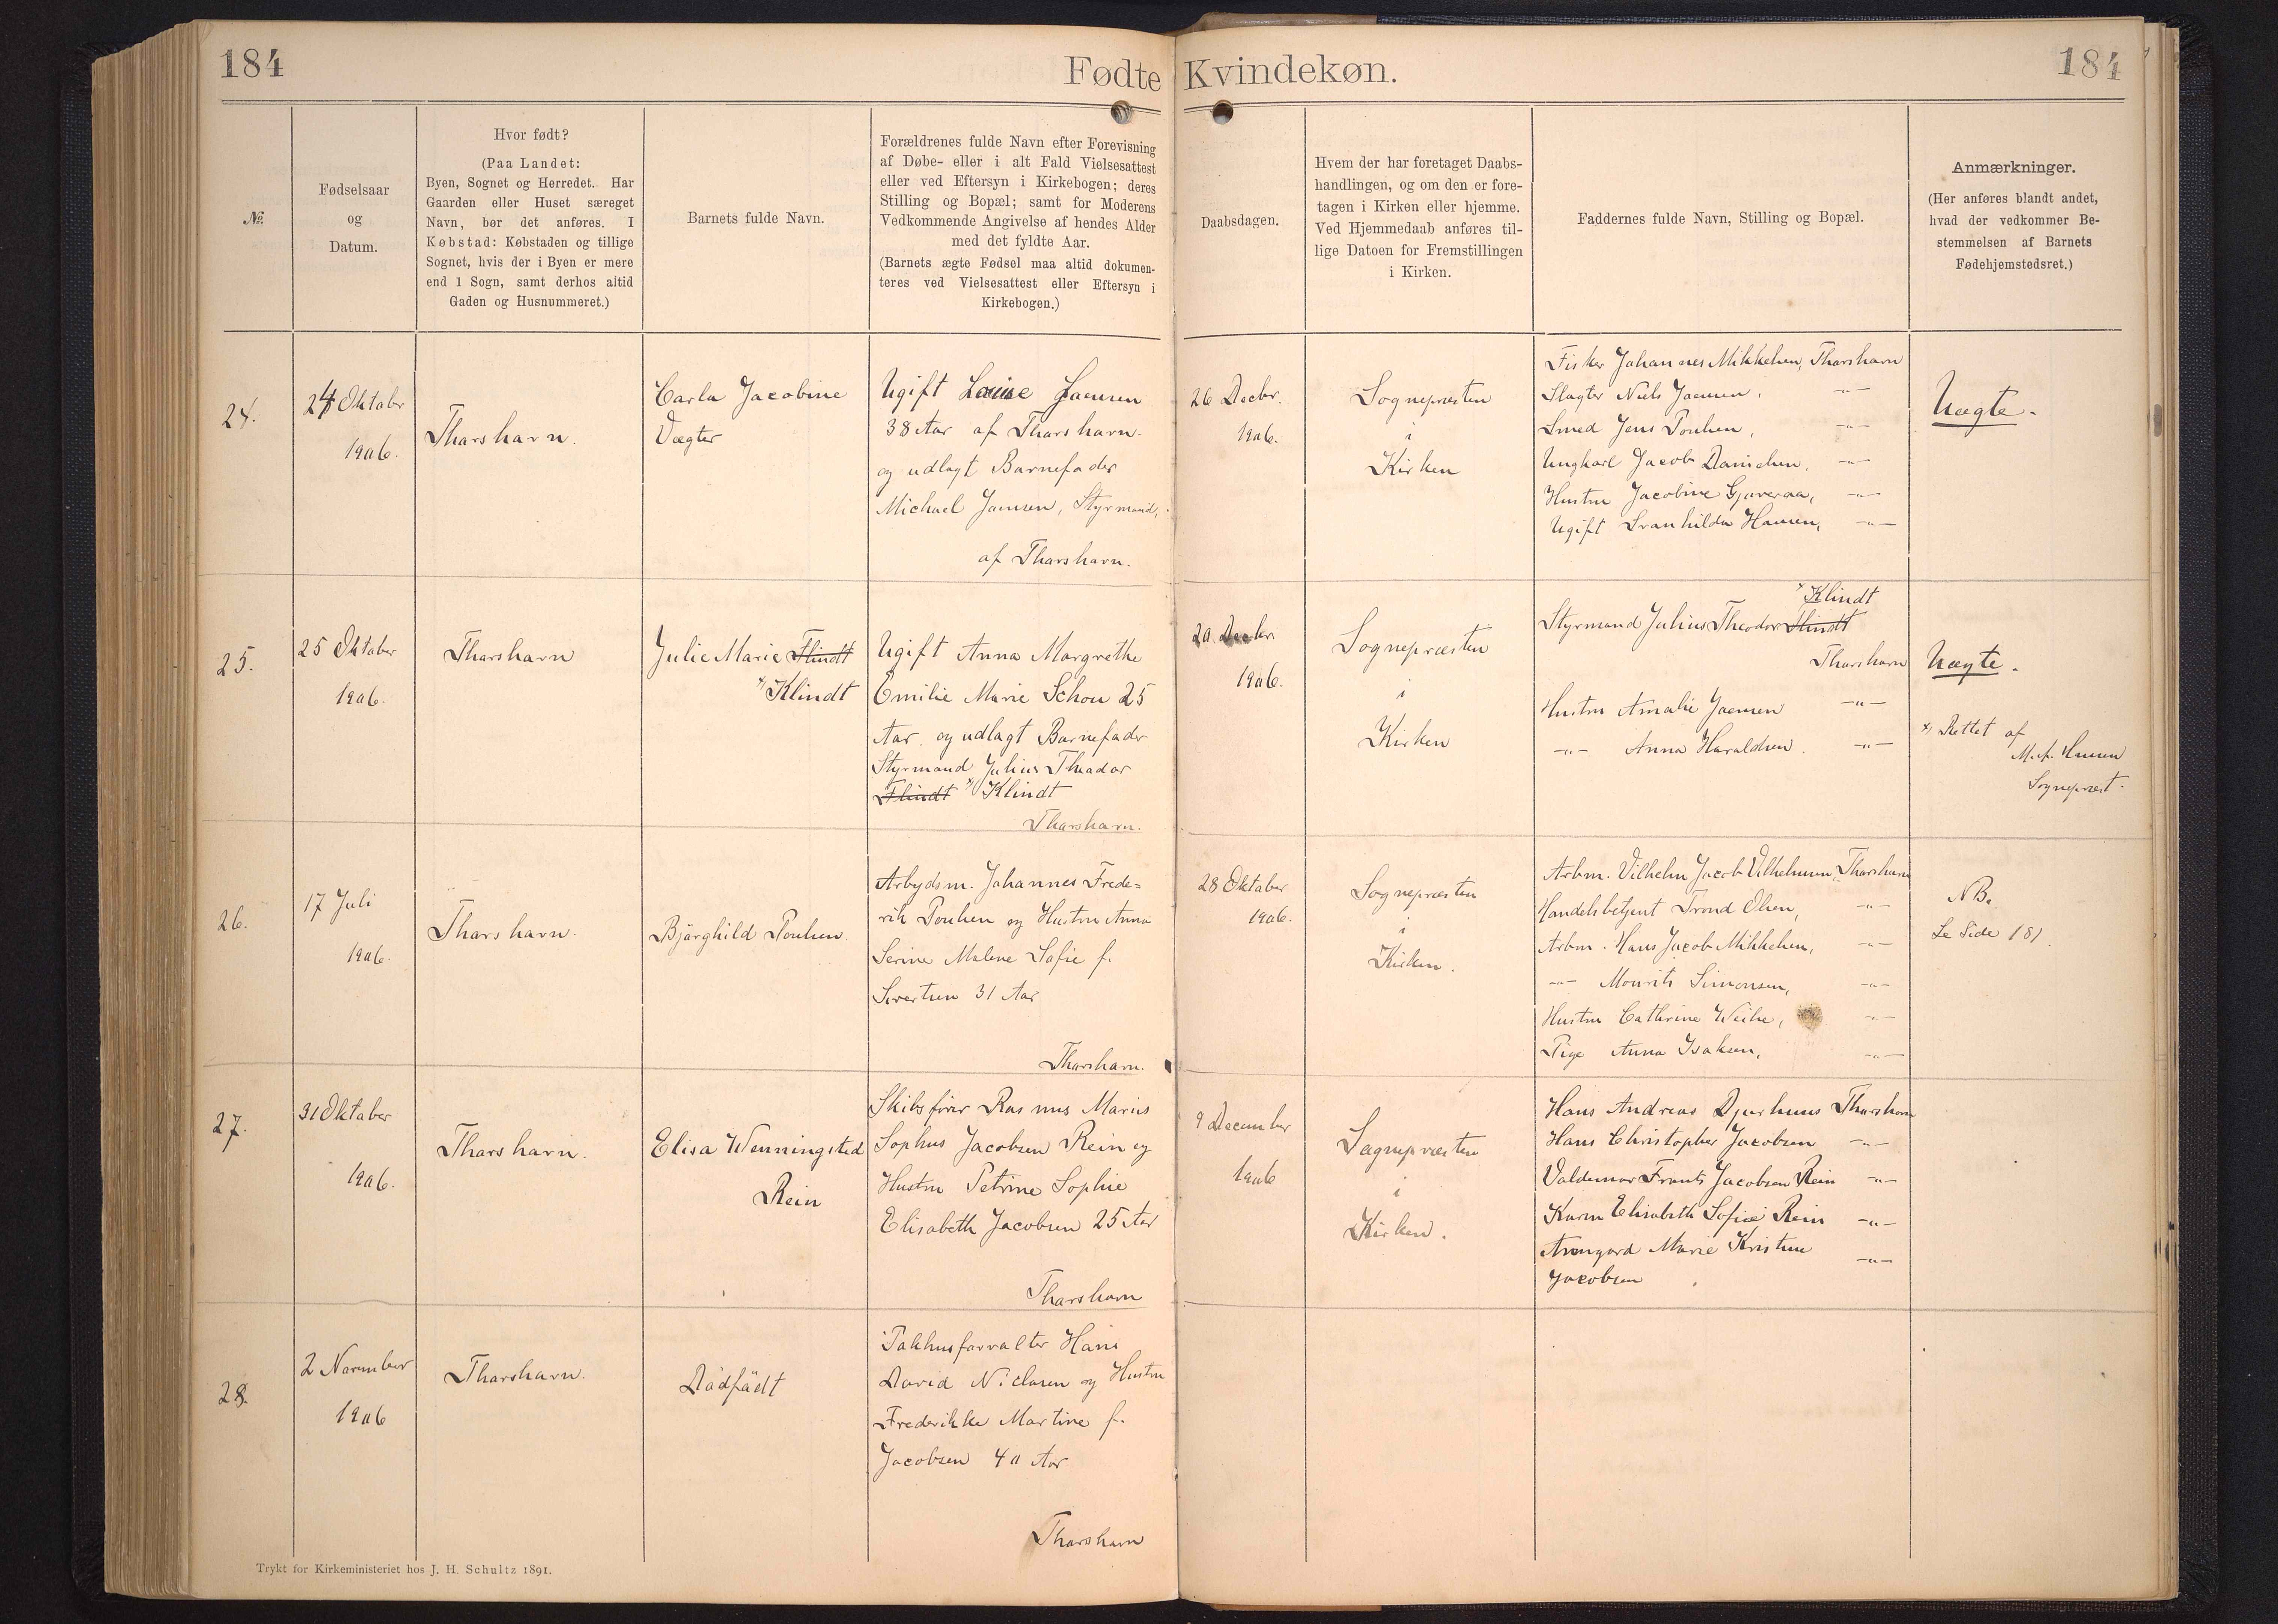 184
Fødte Kvindekøn.
184
№.
Fødselsaar
og
Datum.
Hvor født?
(Paa Landet:
Byen, Sognet og Herredet. Har
Gaarden eller Huset særeget
Navn, bør det anføres. I
Købstad: Købstaden og tillige
Sognet, hvis der i Byen er mere
end 1 Sogn, samt derhos altid
Gaden og Husnummeret.)
Barnets fulde Navn.
Forældrenes fulde Navn efter Forevisning
af Døbe- eller i alt Fald Vielsesattest
eller ved Eftersyn i Kirkebogen; deres
Stilling og Bopæl; samt for Moderens
Vedkommende Angivelse af hendes Alder
med det fyldte Aar.
(Barnets ægte Fødsel maa altid dokumen-
teres ved Vielsesattest eller Eftersyn i
Kirkebogen.)
Daabsdagen.
Hvem der har foretaget Daabs-
handlingen, og om den er fore-
tagen i Kirken eller hjemme.
Ved Hjemmedaab anføres til-
lige Datoen for Fremstillingen
i Kirken.
Faddernes fulde Navn, Stilling og Bopæl.
Anmærkninger.
(Her anføres blandt andet,
hvad der vedkommer Be-
stemmelsen af Barnets
Fødehjemstedsret.)
24.
24 Oktobr
1906.
Thorshavn.
Carla Jacobine
Vægter
Ugift Louise Joensen
38 Aar af Thorshavn.
og udlagt Barnefader
Michael Joensen, Styrmand,
af Thorshavn.
26 Decbr.
1906.
Sognepræsten
i
Kirken
Fisker Johannes Mikkelsen, Thorshavn
Slagter Niels Joensen, -"-
Smed Jens Poulsen, -"-
Ungkarl Jacob Danielsen, -"-
Hustru Jacobine Gjøveraa, -"-
Ugift Svanhilda Hansen, -"-
Uægte.
25.
25 Oktober
1906.
Thorshavn
Julie Marie Flindt
x) Klindt
Ugift Anna Margrethe
Emilie Marie Schou 25
Aar. og udlagt Barnefader
Styrmand Julius Theodor
Flindt x) Klindt
Thorshavn.
20. Decbr.
1906.
Sognepræsten
i
Kirken
x) Klindt
Styrmand Julius Theodor Flindt
Thorshavn
Hustru Amalie Joensen -"-
-"- Anna Haraldsen. -"-
Uægte.
x) Rettet af
Hansen
Sognepræst.
26.
17 Juli
1906.
Thorshavn.
Bjørghild Poulsen.
Arbejdsm. Johannes Frede=
rik Poulsen og Hustru Anna
Serine Malene Sofie f.
Sivertsen 31 Aar
Thorshavn.
28 Oktober
1906.
Sognepræsten
i
Kirken.
Arbm. Vilhelm Jacob Vilhelmsen, Thorshavn
Handelsbetjent Trond Olsen, -"-
Arbm. Hans Jacob Mikkelsen, -"-
-"- Mourits Simonsen, -"-
Hustru Cathrine Weihe, -"-
Pige Anna Isaksen, -"-
NB.
Se Side 181.
27.
31 Oktober
1906.
Thorshavn.
Elisa Wenningsted
Rein
Skibsfører Rasmus Marius
Sophus Jacobsen Rein og
Hustru Petrine Sophie
Elisabeth Jacobsen 25 Aar
Thorshavn
9 December
1906
Sognepræsten
i
Kirken.
Hans Andreas Djurhuus Thorshavn
Hans Christopher Jacobsen -"-
Valdemar Frants Jacobsen Rein -"-
Karen Elisabeth Sofie Rein -"-
Armgard Marie Kristine -"-
Jacobsen
28.
2 November
1906
Thorshavn.
Dødfødt
Pakhusforvalter Hans
David Niclasen og Hustru
Frederikke Martine f.
Jacobsen 40 Aar
Thorshavn
Trykt for Kirkeministeriet hos J. H. Schultz 1891.